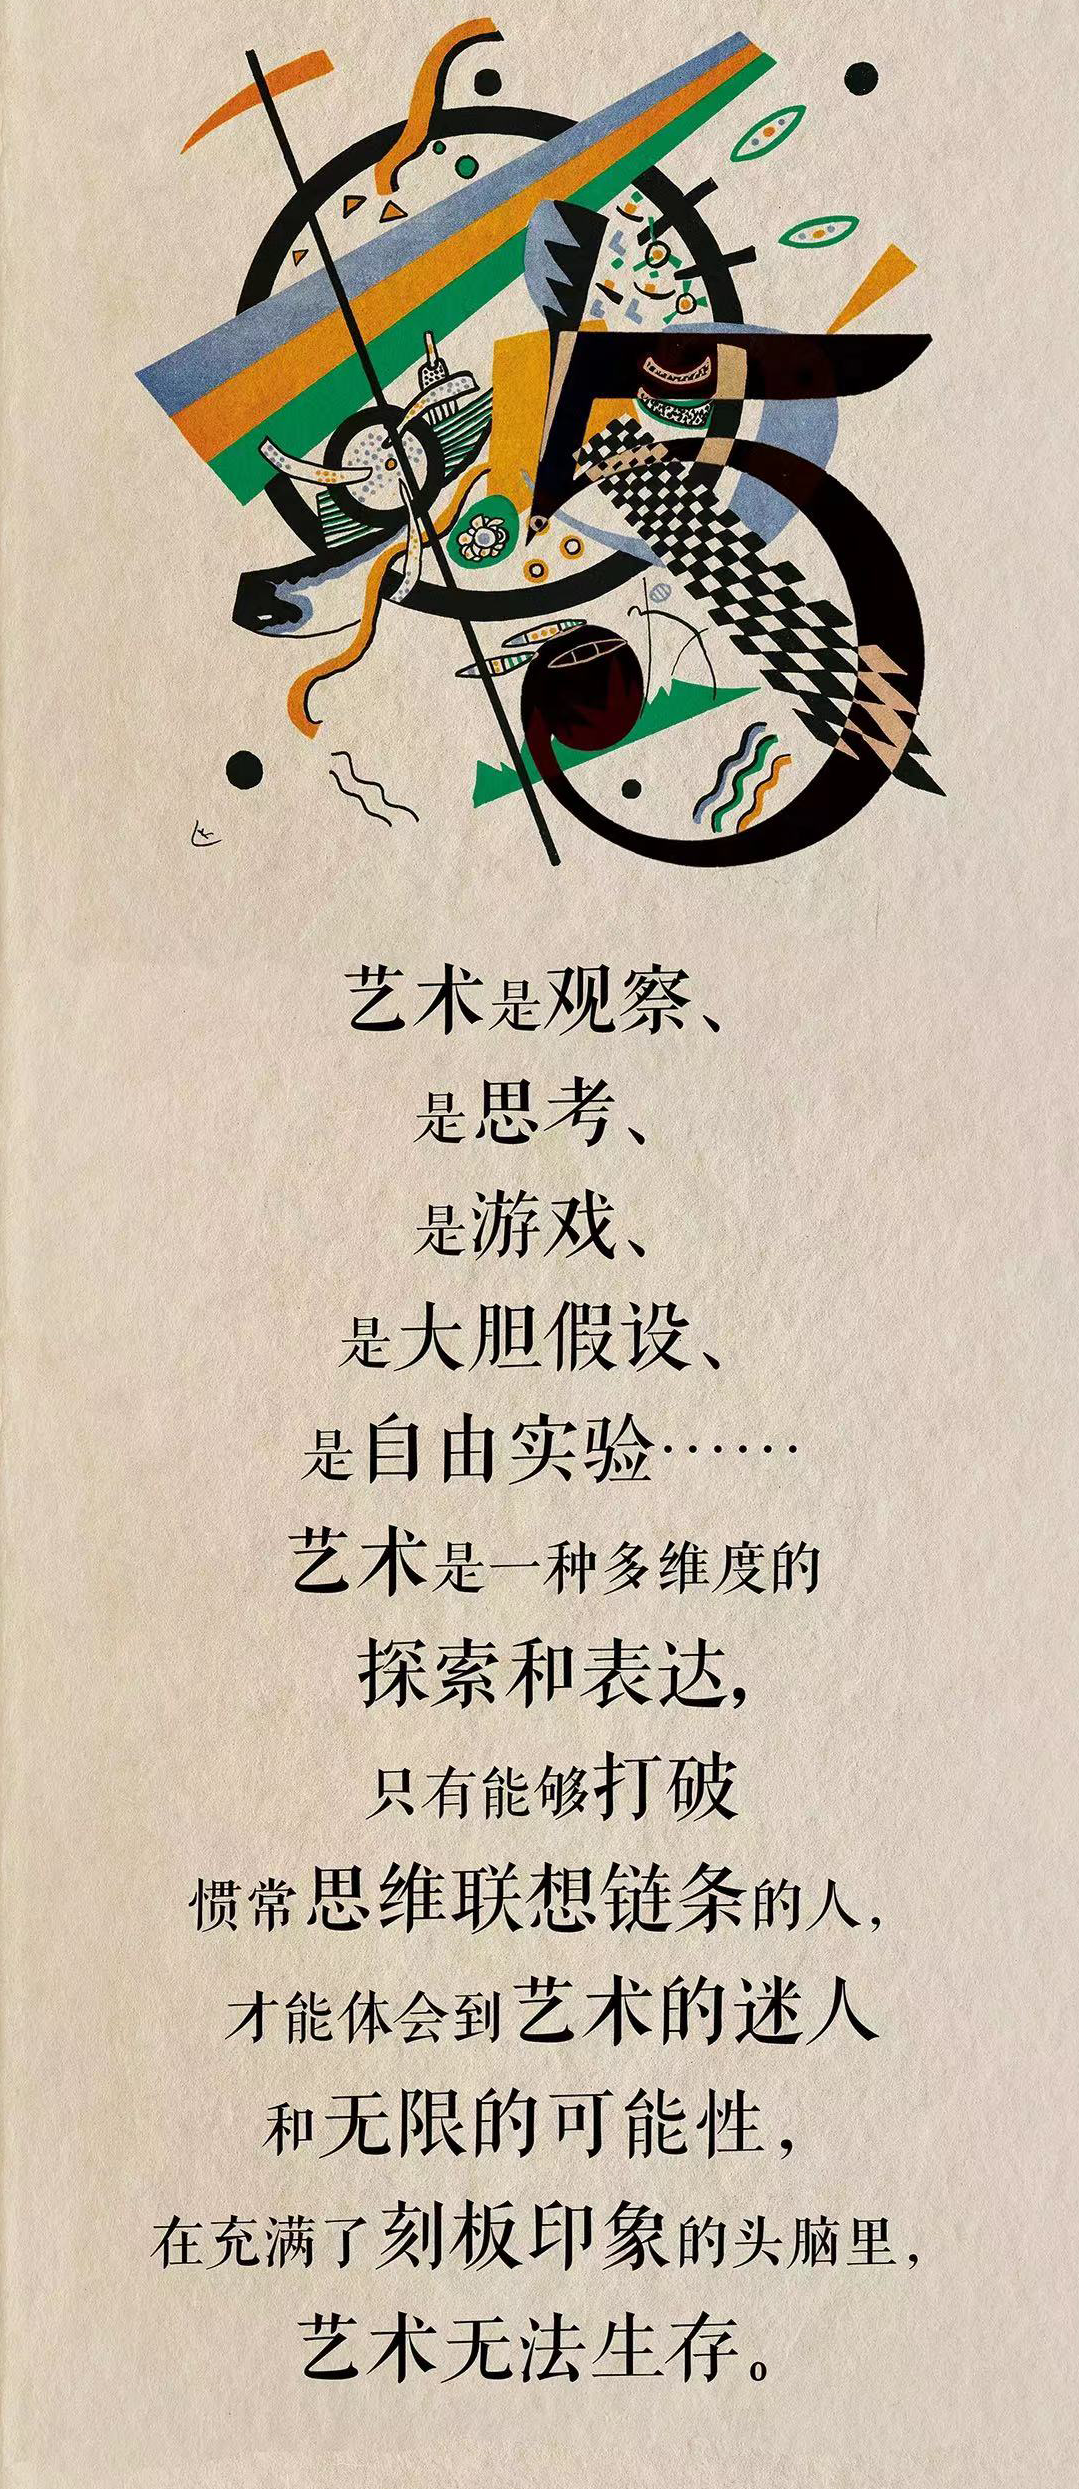 5
艺术是观察、
是思考、
是游戏、
是大胆假设、
是自由实验……
艺术是一种多维度的
探索和表达，
只有能够打破
惯常思维联想链条的人，
才能体会到艺术的迷人
和无限的可能性，
在充满了刻板印象的头脑里，
艺术无法生存。